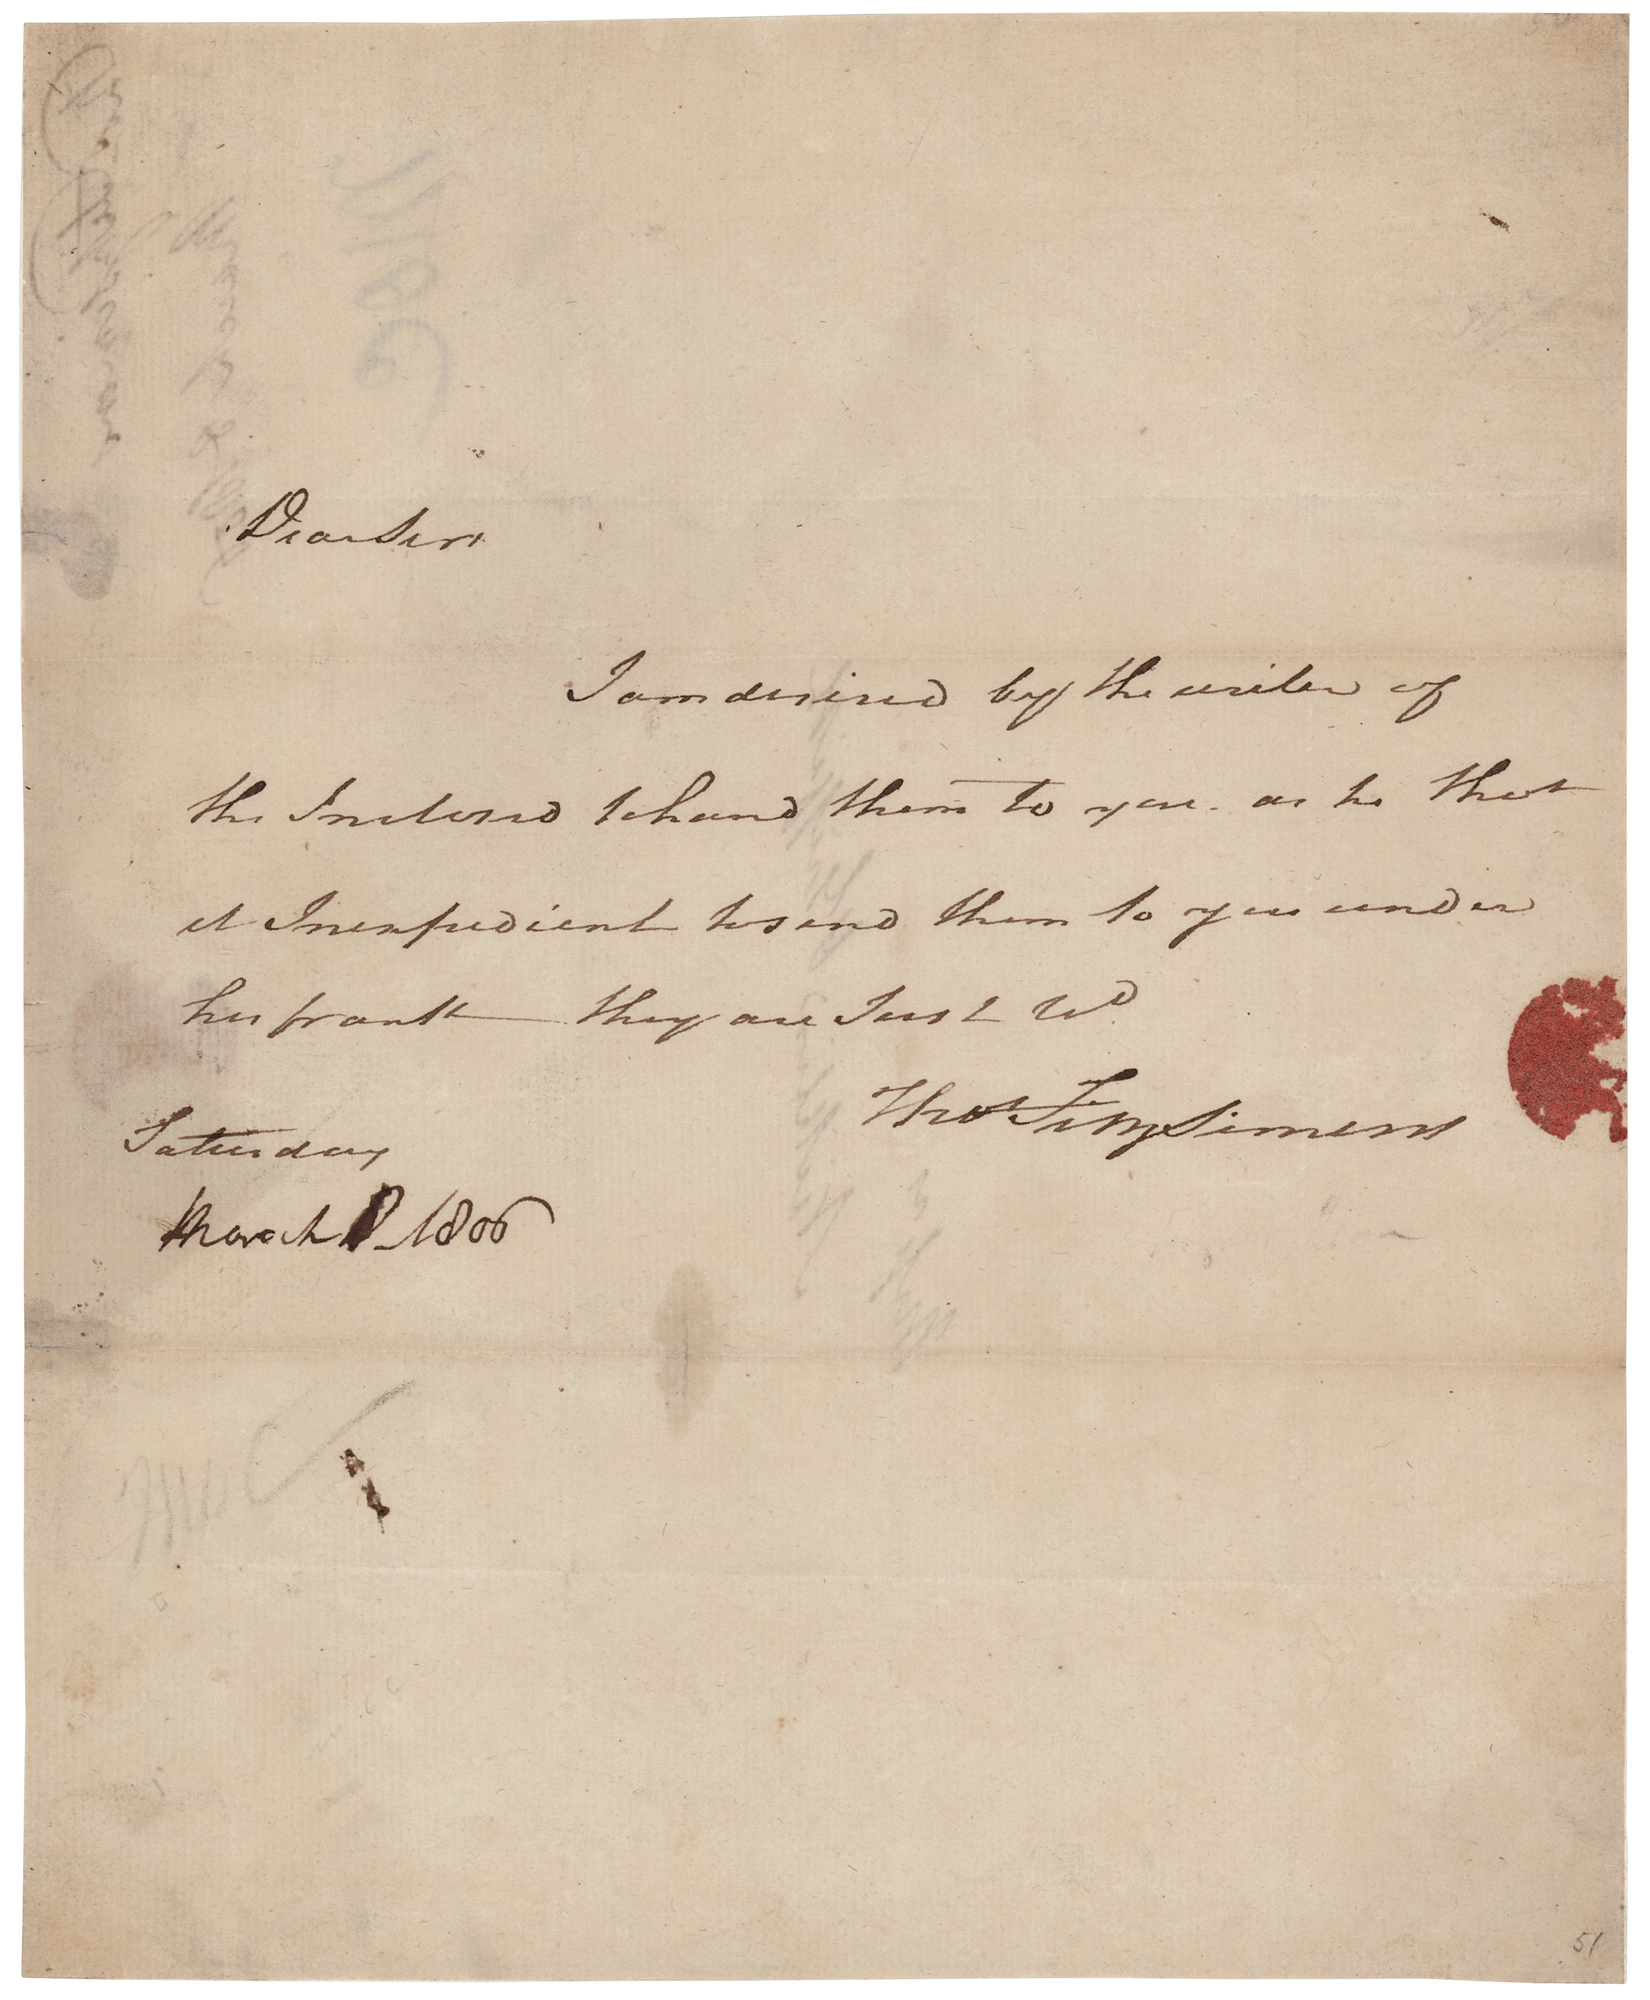 Dear Sir
I am desired by the writer of
the Inclosed to hand them to you. as he thot
it Inexpedient to send them to you under
his frank they are Just Rd
Thos FitzSimons
Saturday
March 8 1806
51